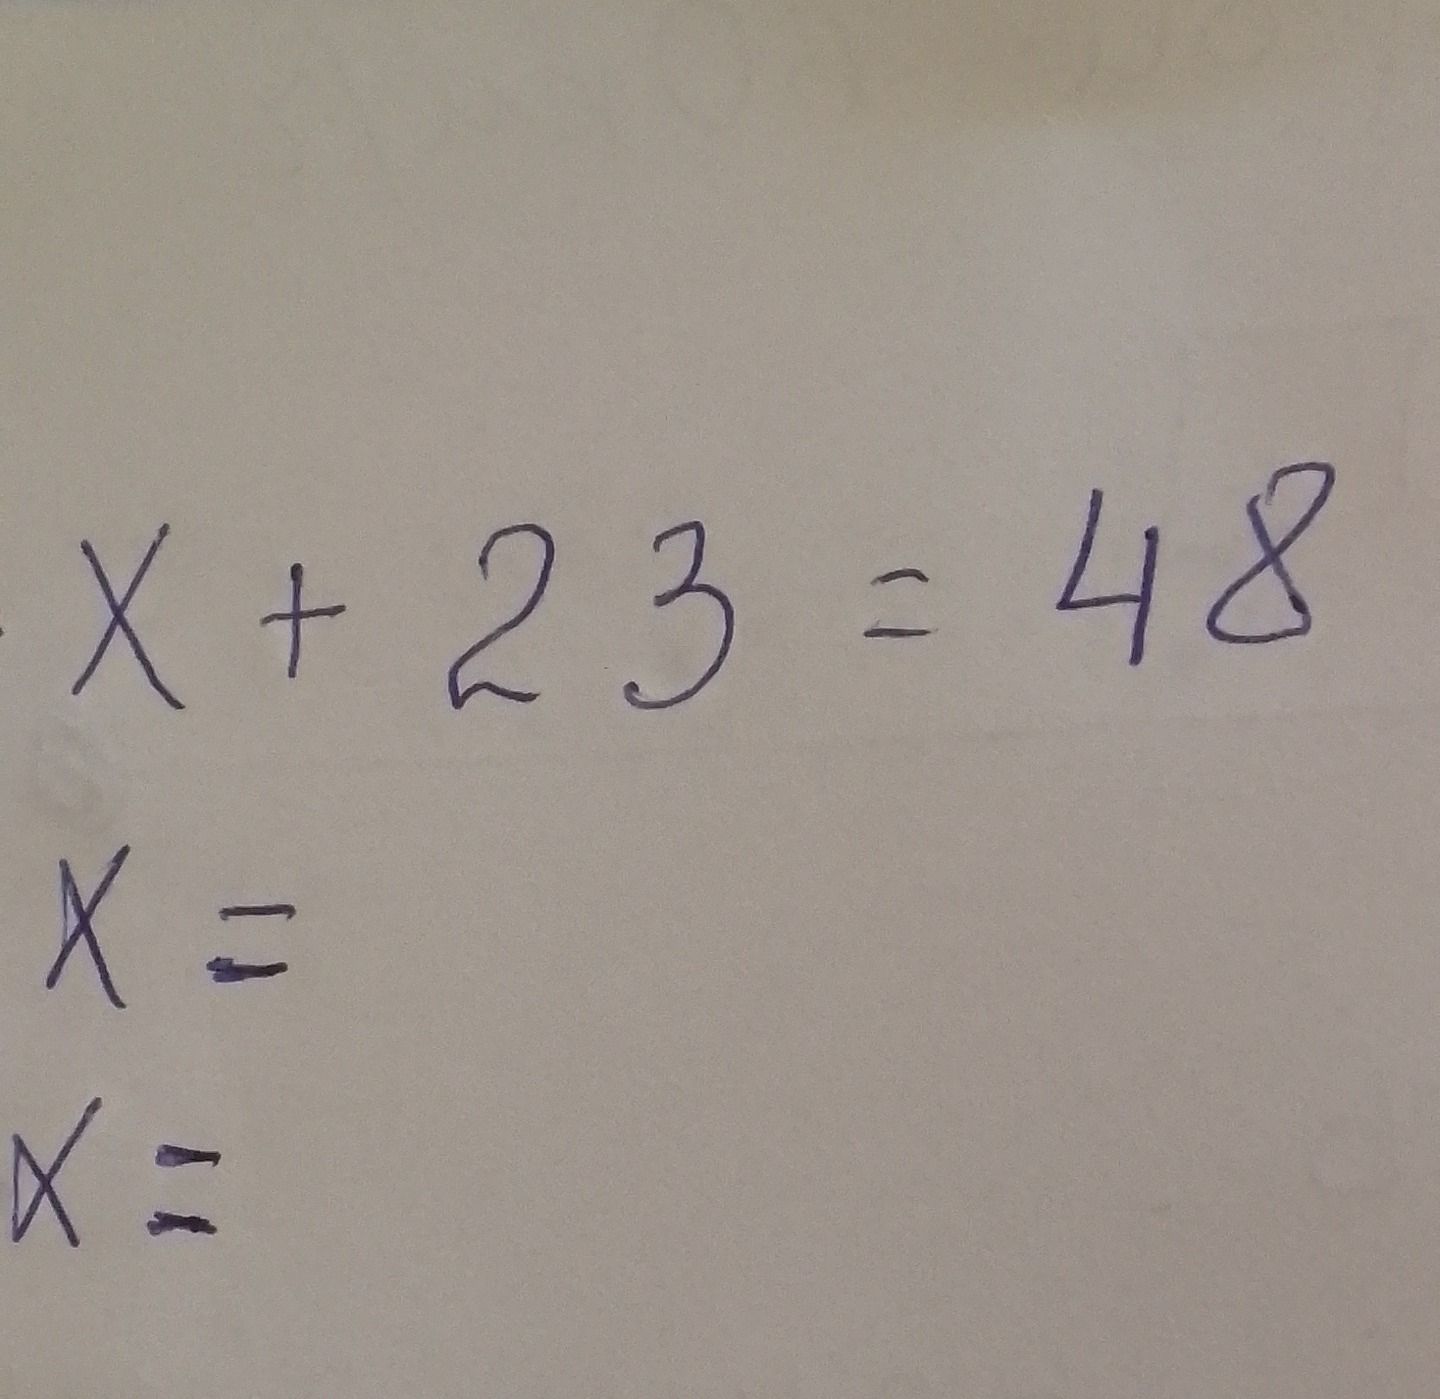 x + 23 = 48
x =
x =